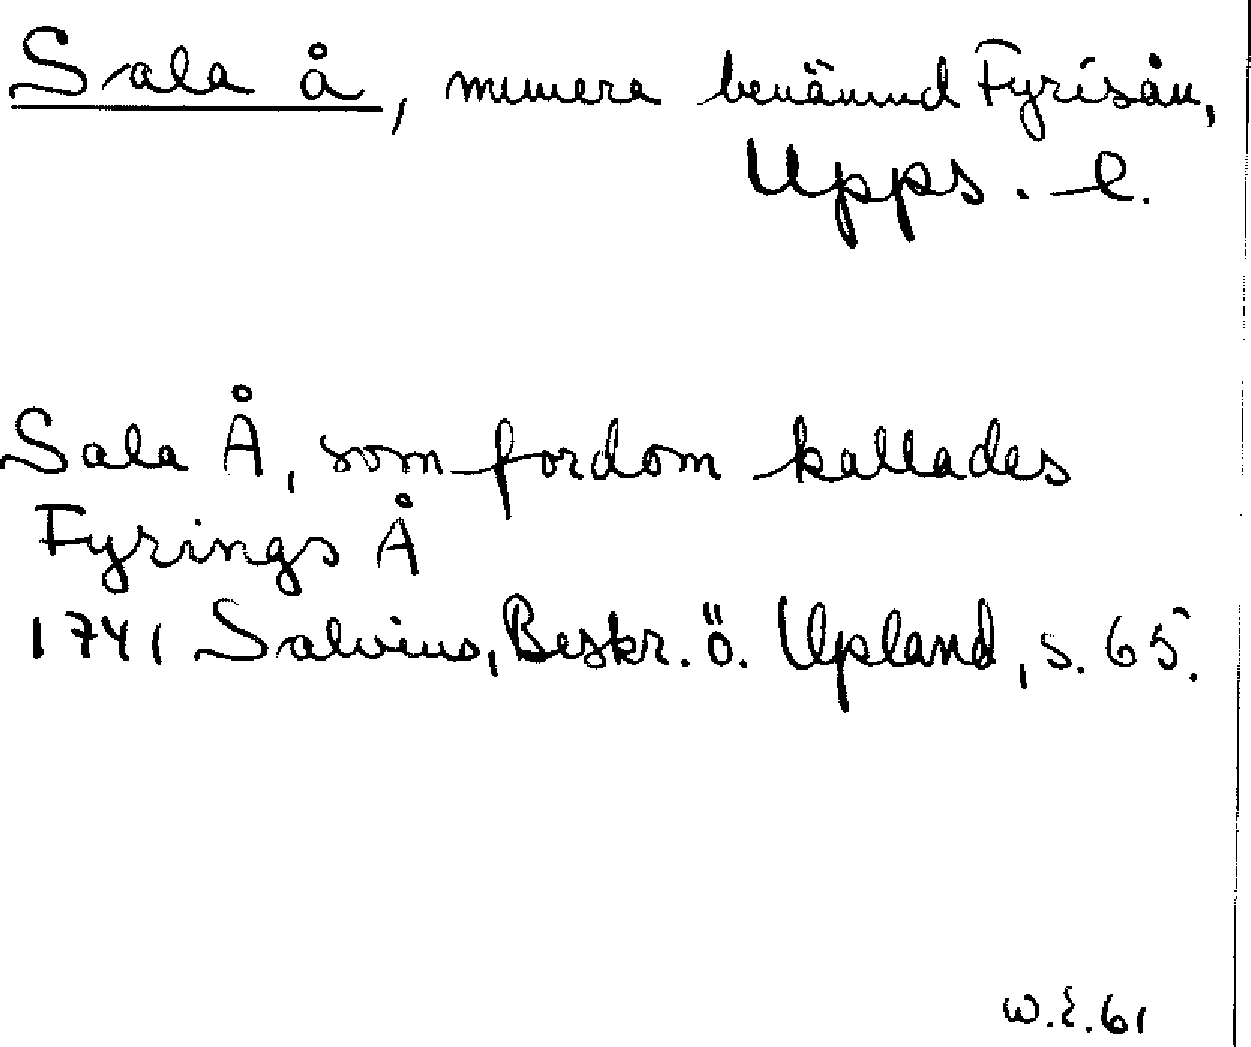 Sala å, numera benämnd Fyrisån,
Upps. l.
Sala Å, som fordom kallades
Fyrings Å
1741 Salvius, Beskr. ö. Upland, s. 65.
W.E.61